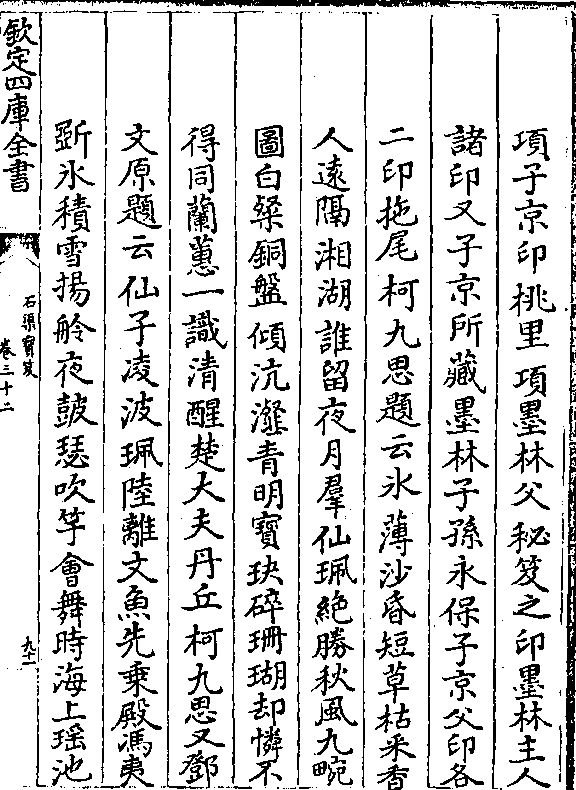 項子京印桃里項墨林父秘笈之印墨林主人
諸印又子京所藏墨林子孫永保子京父印各
二印拖尾柯九思題云氷薄沙昏短草枯采香
人遠隔湘湖誰留夜月羣仙珮絶勝秋風九畹
圖白粲銅盤傾沆瀣青明寶玦碎珊瑚却憐不
得同蘭蕙一識清醒楚大夫丹丘柯九思又鄧
文原題云仙子凌波珮陸離文魚先乗殿馮夷
斲氷積雪揚舲夜鼓瑟吹竽㑹舞時海上瑶池
欽定四庫全書
石渠寳笈
卷三十二
九十一